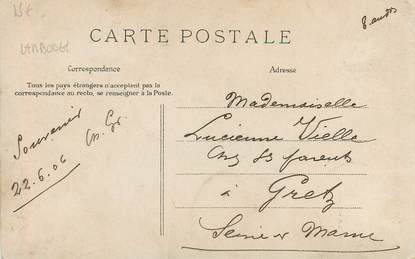 CARTE POSTALE
Correspondance
Tous les pays étrangers n'acceptent pas la
correspondance au recto, se renseigner à la Poste.
Souvenir
22.6.06
Adresse
Mademoiselle
Lucienne Vielle
chez ses parents
à Gretz
Seine et Marne